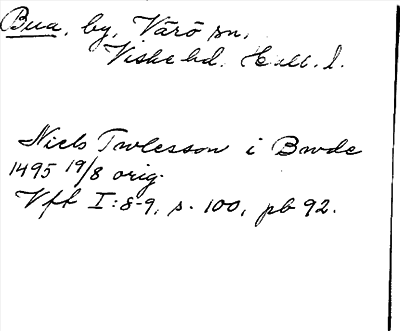 Bua, by, Värö sn,
Viske hd. Hall. l.
Niels Twlesson i Bwde
1495 19/8 orig.
Vfk I:8-9, s. 100, pb 92.